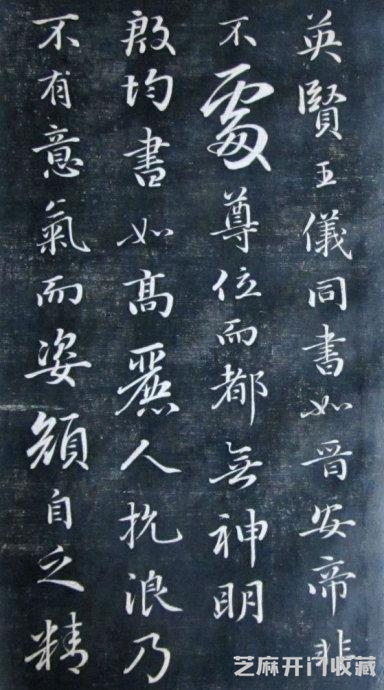 英賢王儀同書如晉安帝非
不處尊位而都無神明
殷均書如高麗人抗浪乃
不有意氣而姿顏自乏精
芝麻开门收藏